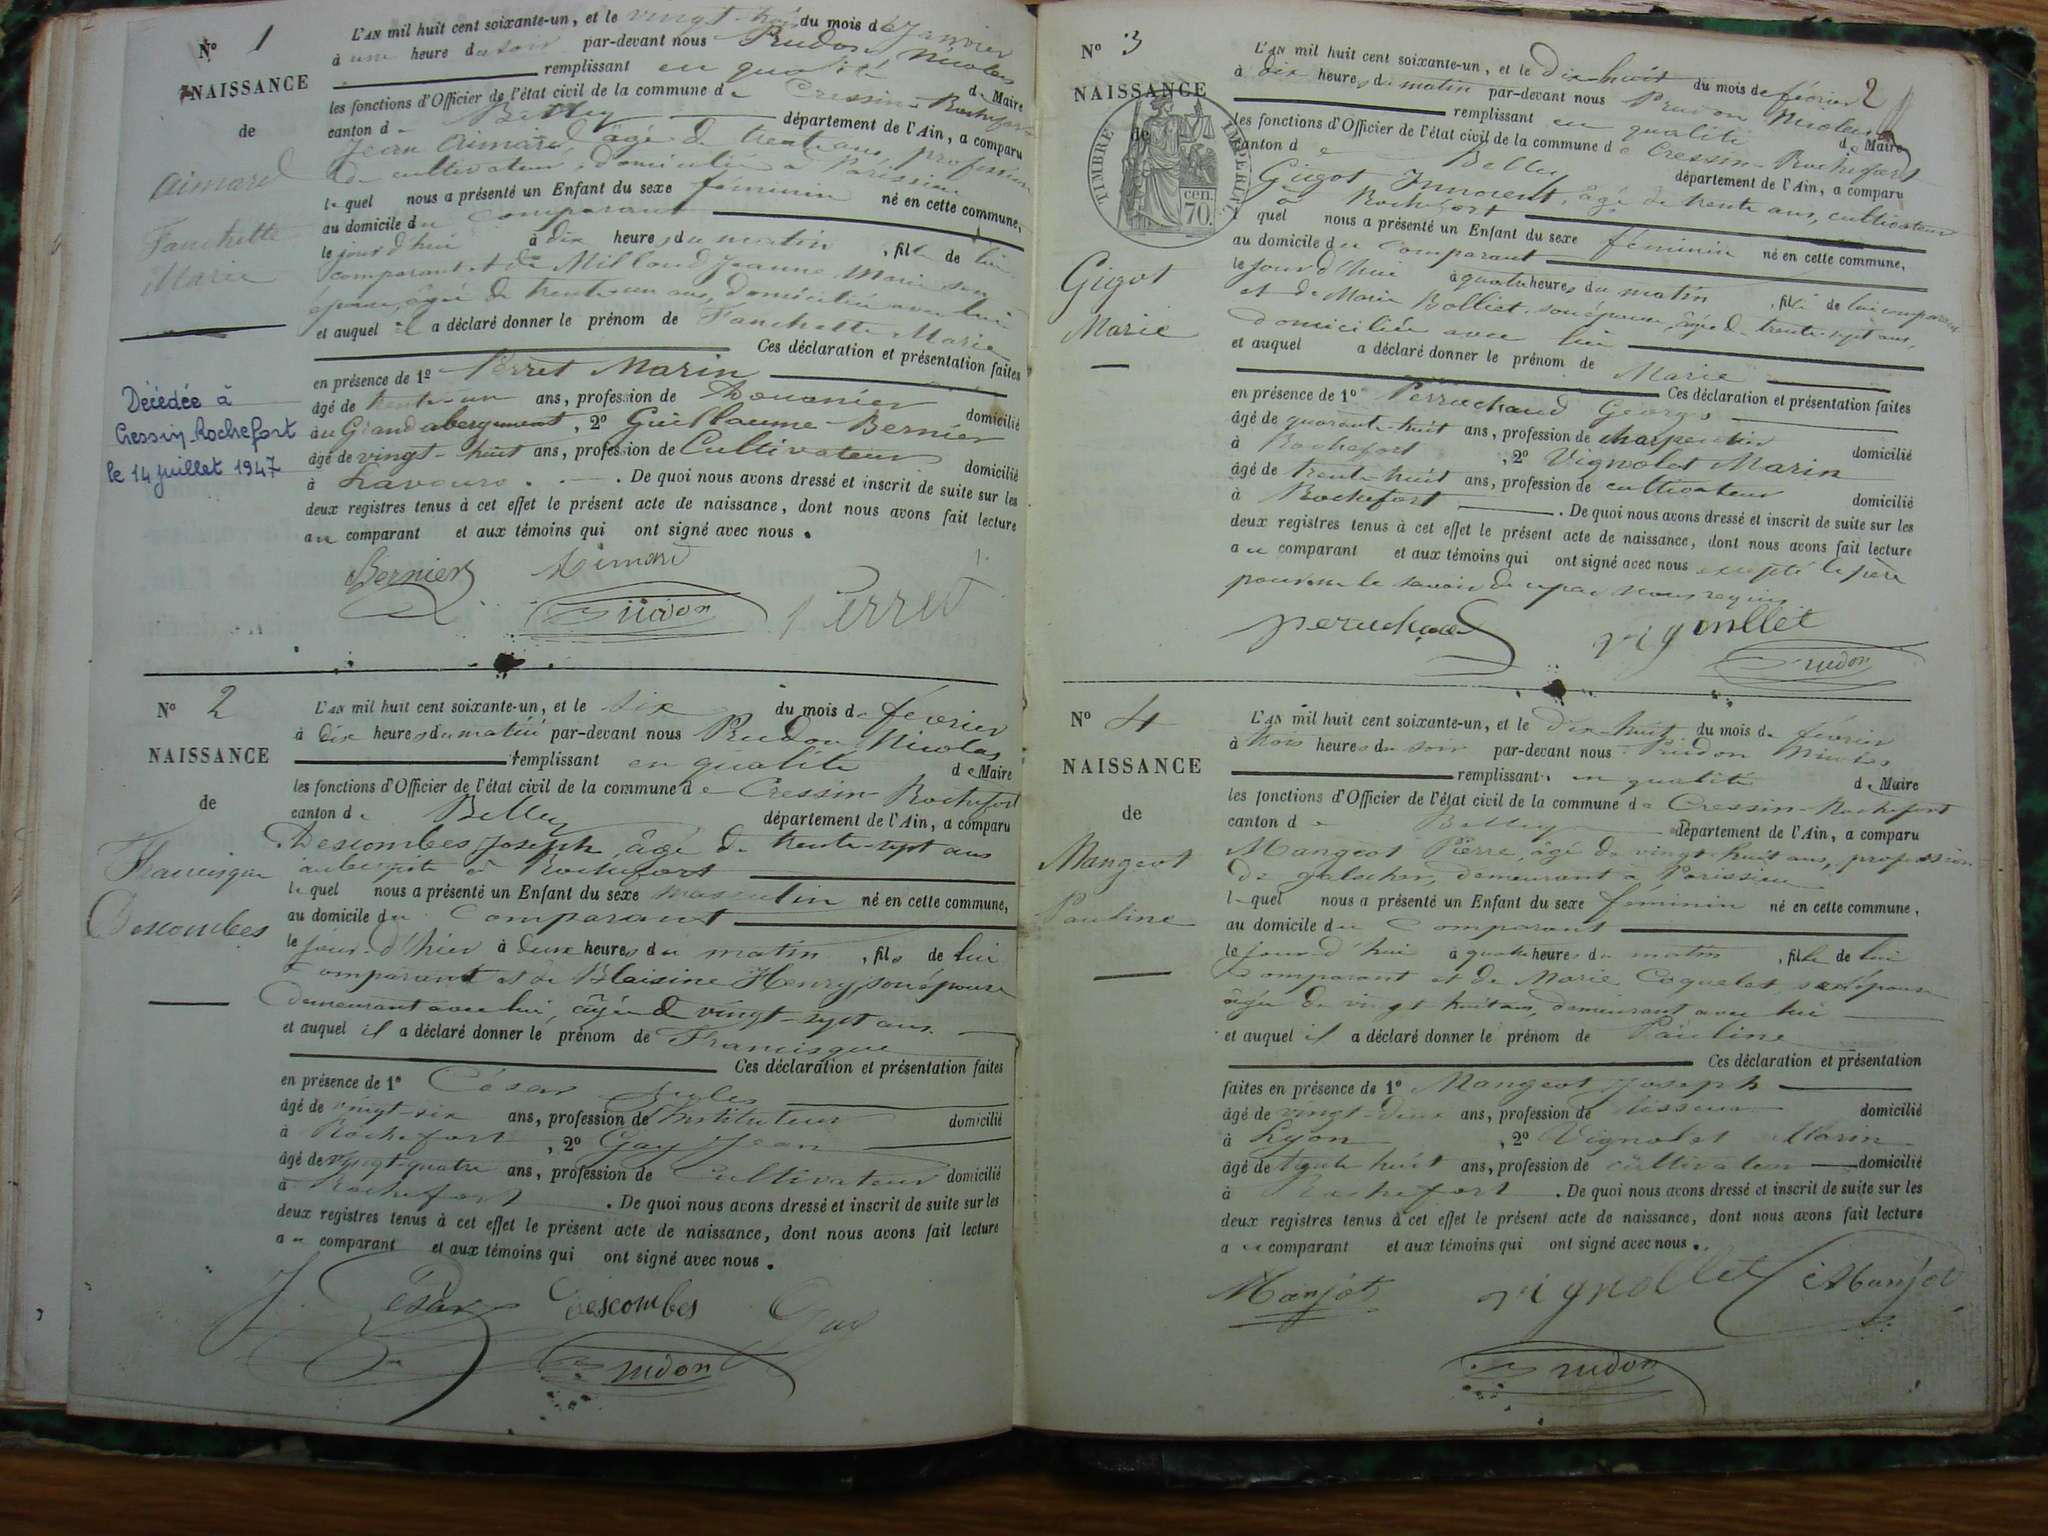 N° 1
NAISSANCE
de
Aimard
Fanchette
Marie
Décédée à
Cressin-Rochefort
le 14 juillet 1947
L'AN mil huit cent soixante-un, et le vingt-trois du mois de Janvier
à une heure du soir par-devant nous Prudon Nicolas
remplissant en qualité de Maire
les fonctions d'Officier de l'état civil de la commune de Cressin-Rochefort
canton de Belley département de l'Ain, a comparu
Jean Aimard âgé de trente ans, profession
de cultivateur, domicilié à Parissieu
lequel nous a présenté un Enfant du sexe féminin né en cette commune,
au domicile du comparant
le jourd'hui à dix heures du matin, fille de lui
comparant et de Milloud Jeanne Marie son
épouse, âgée de trente-un ans, domiciliée avec lui
et auquel il a déclaré donner le prénom de Fanchette Marie
Ces déclaration et présentation faites
en présence de 1° Perret Marin
âgé de trente-un ans, profession de Douanier domicilié
au Grand abergement, 2° Guillaume Bernier
âgé de vingt-huit ans, profession de Cultivateur domicilié
à Lavours. De quoi nous avons dressé et inscrit de suite sur les
deux registres tenus à cet effet le présent acte de naissance, dont nous avons fait lecture
au comparant et aux témoins qui ont signé avec nous.
Bernier Aimard
Prudon Perret
N° 2
NAISSANCE
de
Francisque
Descombes
L'AN mil huit cent soixante-un, et le six du mois de février
à dix heures du matin par-devant nous Prudon Nicolas
remplissant en qualité de Maire
les fonctions d'Officier de l'état civil de la commune de Cressin-Rochefort
canton de Belley département de l'Ain, a comparu
Descombes Joseph, âgé de trente-sept ans
aubergiste à Rochefort
lequel nous a présenté un Enfant du sexe masculin né en cette commune,
au domicile du comparant
le jour d'hier à deux heures du matin, fils de lui
comparant et de Blaisine Henry, son épouse
demeurant avec lui, âgée de vingt-sept ans.
et auquel il a déclaré donner le prénom de Francisque
Ces déclaration et présentation faites
en présence de 1° César Jules
âgé de vingt-six ans, profession de Instituteur domicilié
à Rochefort, 2° Gay Jean
âgé de vingt-quatre ans, profession de Cultivateur domicilié
à Rochefort. De quoi nous avons dressé et inscrit de suite sur les
deux registres tenus à cet effet le présent acte de naissance, dont nous avons fait lecture
au comparant et aux témoins qui ont signé avec nous.
J. César Descombes Gay
Prudon
2
N° 3
NAISSANCE
de
TIMBRE IMPERIAL
70 cen.
Gugot
Marie
L'AN mil huit cent soixante-un, et le Dix-huit du mois de février
à dix heures du matin par-devant nous Prudon Nicolas
remplissant en qualité de Maire
les fonctions d'Officier de l'état civil de la commune de Cressin-Rochefort
canton de Belley département de l'Ain, a comparu
Gugot Innocent, âgé de trente ans, cultivateur
à Rochefort
lequel nous a présenté un Enfant du sexe féminin né en cette commune,
au domicile du comparant
le jour d'hui à quatre heures du matin, fille de lui comparant
et de Marie Bolliet, son épouse, âgée de trente-sept ans,
domiciliée avec lui
et auquel a déclaré donner le prénom de Marie
Ces déclaration et présentation faites
en présence de 1° Perruchaud Georges
âgé de quarante-huit ans, profession de charpentier domicilié
à Rochefort, 2° Vignolet Marin
âgé de trente-huit ans, profession de cultivateur domicilié
à Rochefort. De quoi nous avons dressé et inscrit de suite sur les
deux registres tenus à cet effet le présent acte de naissance, dont nous avons fait lecture
au comparant et aux témoins qui ont signé avec nous excepté le père
pour ne le savoir de ce par nous requis
peruchaud vignollet
Prudon
N° 4
NAISSANCE
de
Mangeot
Pauline
L'AN mil huit cent soixante-un, et le Dix-huit du mois de février
à trois heures du soir par-devant nous Prudon Nicolas
remplissant en qualité de Maire
les fonctions d'Officier de l'état civil de la commune de Cressin-Rochefort
canton de Belley département de l'Ain, a comparu
Mangeot Pierre, âgé de vingt-huit ans, profession
de galocher, demeurant à Parissieu
lequel nous a présenté un Enfant du sexe féminin né en cette commune,
au domicile du comparant
le jour d'hui à quatre heures du matin, fille de lui
comparant et de Marie Coquelet son épouse
âgée de vingt-huit ans, demeurant avec lui
et auquel il a déclaré donner le prénom de Pauline
Ces déclaration et présentation
faites en présence de 1° Mangeot Joseph
âgé de vingt-deux ans, profession de tisseur domicilié
à Lyon, 2° Vignolet Marin
âgé de trente huit ans, profession de cultivateur domicilié
à Rochefort. De quoi nous avons dressé et inscrit de suite sur les
deux registres tenus à cet effet le présent acte de naissance, dont nous avons fait lecture
au comparant et aux témoins qui ont signé avec nous.
Manjot vignollet Manjot
Prudon